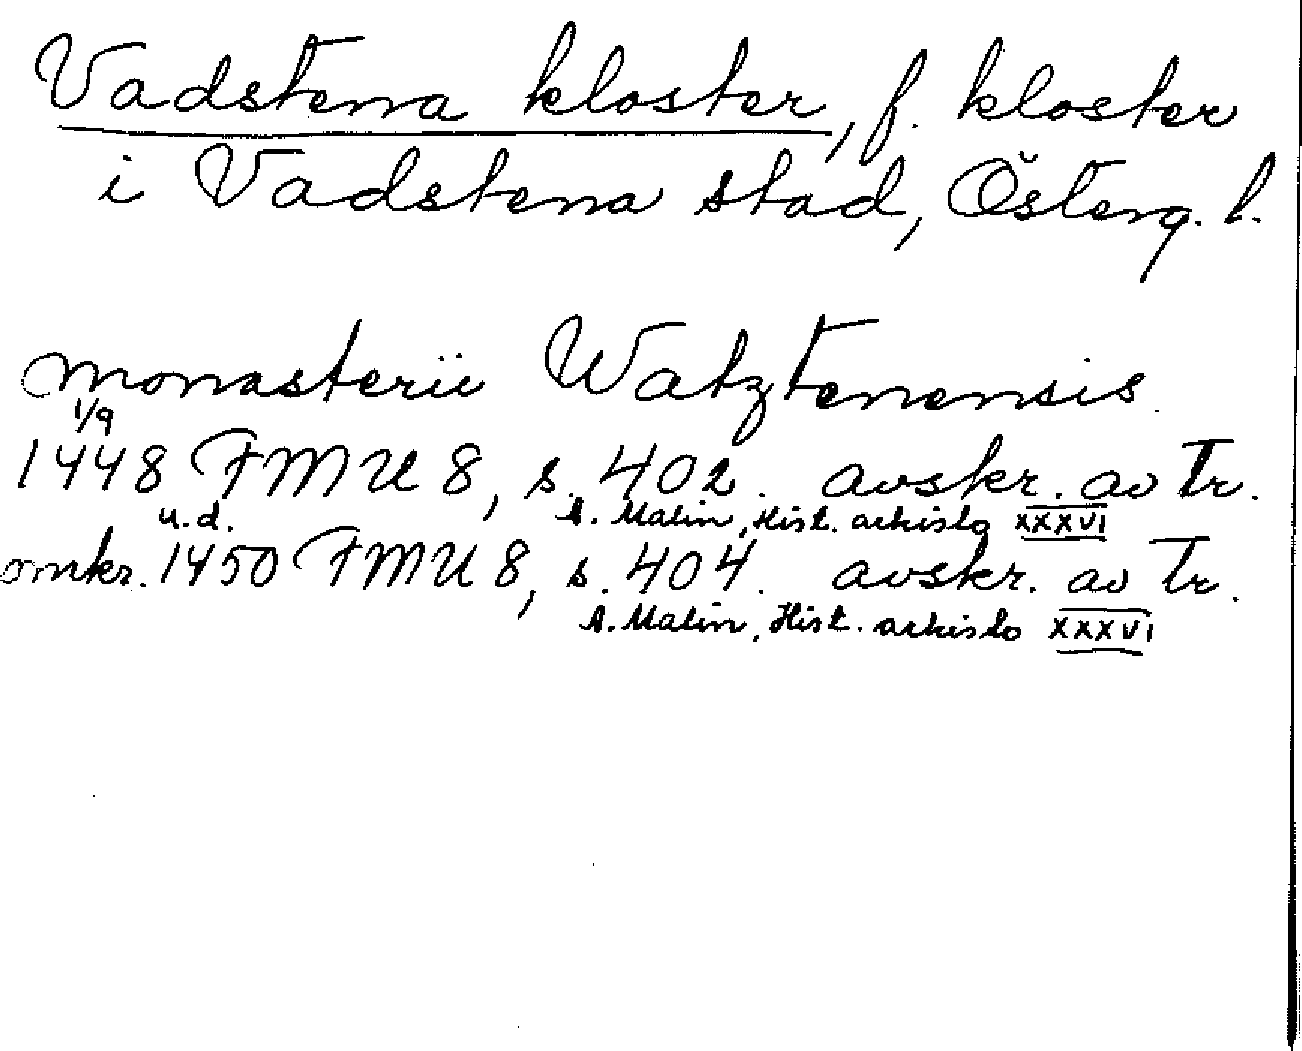 Vadstena kloster, f. kloster
i Vadstena stad, Österg. l.
monasterii Watztenensis
1/9
1448 FMU 8, s. 402. avskr. av Tr.
u.d. A. Malin, Hist. arkisto XXXVI
omkr. 1450 FMU 8, s. 404. avskr. av Tr.
A. Malin, Hist. arkisto XXXVI